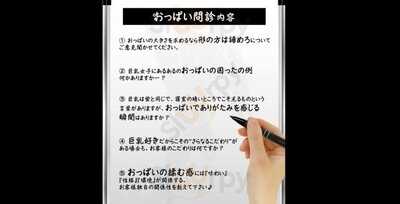 おっぱい問診内容
① おっぱいの大きさを求めるなら形の方は諦めろについて
ご意見聞かせてください。
② 巨乳女子にあるあるのおっぱいの困ったの例
何かありますかー？
③ 巨乳は蛍と同じで、露室の暗いところでこそえるものという
言葉がありますが、おっぱいでありがたみを感じる
瞬間はありますか？
④ 巨乳好きだからこその"さらなるこだわり"が
ある場合も、お客様のこだわりは何ですか？
⑤ おっぱいの揉む感には『味わい』
『性格』『環境』が関係する。
お客様独自の関係性を教えて下さい♪